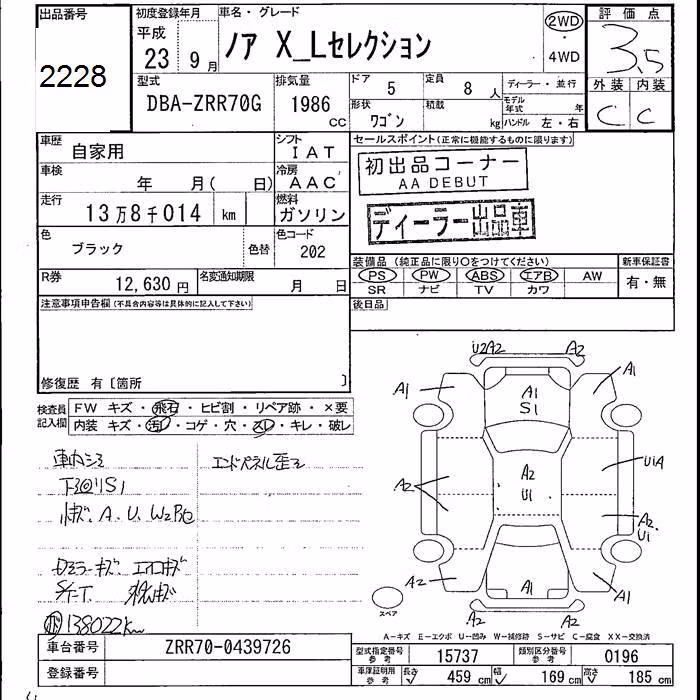 出品番号
2228
初度登録年月
平成
23 9月
車名・グレード
ノア X_Lセレクション
2WD
・
4WD
評価点
3.5
外装 内装
C C
型式
DBA-ZRR70G
排気量
1986 CC
ドア 5
定員 8人
形状 ワゴン
積載 kg
ディーラー・並行
モデル年式 年
ハンドル 左・右
車歴 自家用
シフト IAT
車検 年 月( 日)
冷房 AAC
走行 13万8千014 km
燃料 ガソリン
色 ブラック 色替
色コード 202
R券 12,630円
名変通知期限 月 日
セールスポイント(正常に機能するものに限ります)
初出品コーナー
AA DEBUT
ディーラー出品車
装備品 (純正品に限り○をつけてください)
新車保証書
PS PW ABS エアB AW
SR ナビ TV カワ
有・無
後日品
注意事項申告欄(不具合内容等は具体的に記入して下さい)
修復歴 有〔箇所 〕
検査員記入欄
FW キズ・飛石・ヒビ割・リペア跡・×要
内装 キズ・汚レ・コゲ・穴・スレ・キレ・破レ
車内シミ
下廻りS1
エンドパネル歪ミ
キズ、A、U、W2
ドアミラーキズ
138022km
U2A2 A2
A1 A1
A1
S1
A2
U1
A2
U1A
A2
U1
A2 A1 A1
A2 A2
スペア
A-キズ E-エクボ U-凹み W-補修跡 S-サビ C-腐食 XX-交換済
車台番号 ZRR70-0439726
登録番号
型式指定番号 参考 15737
類別区分番号 参考 0196
車庫証明用 参考 長さ 459cm 幅 169cm 高さ 185cm